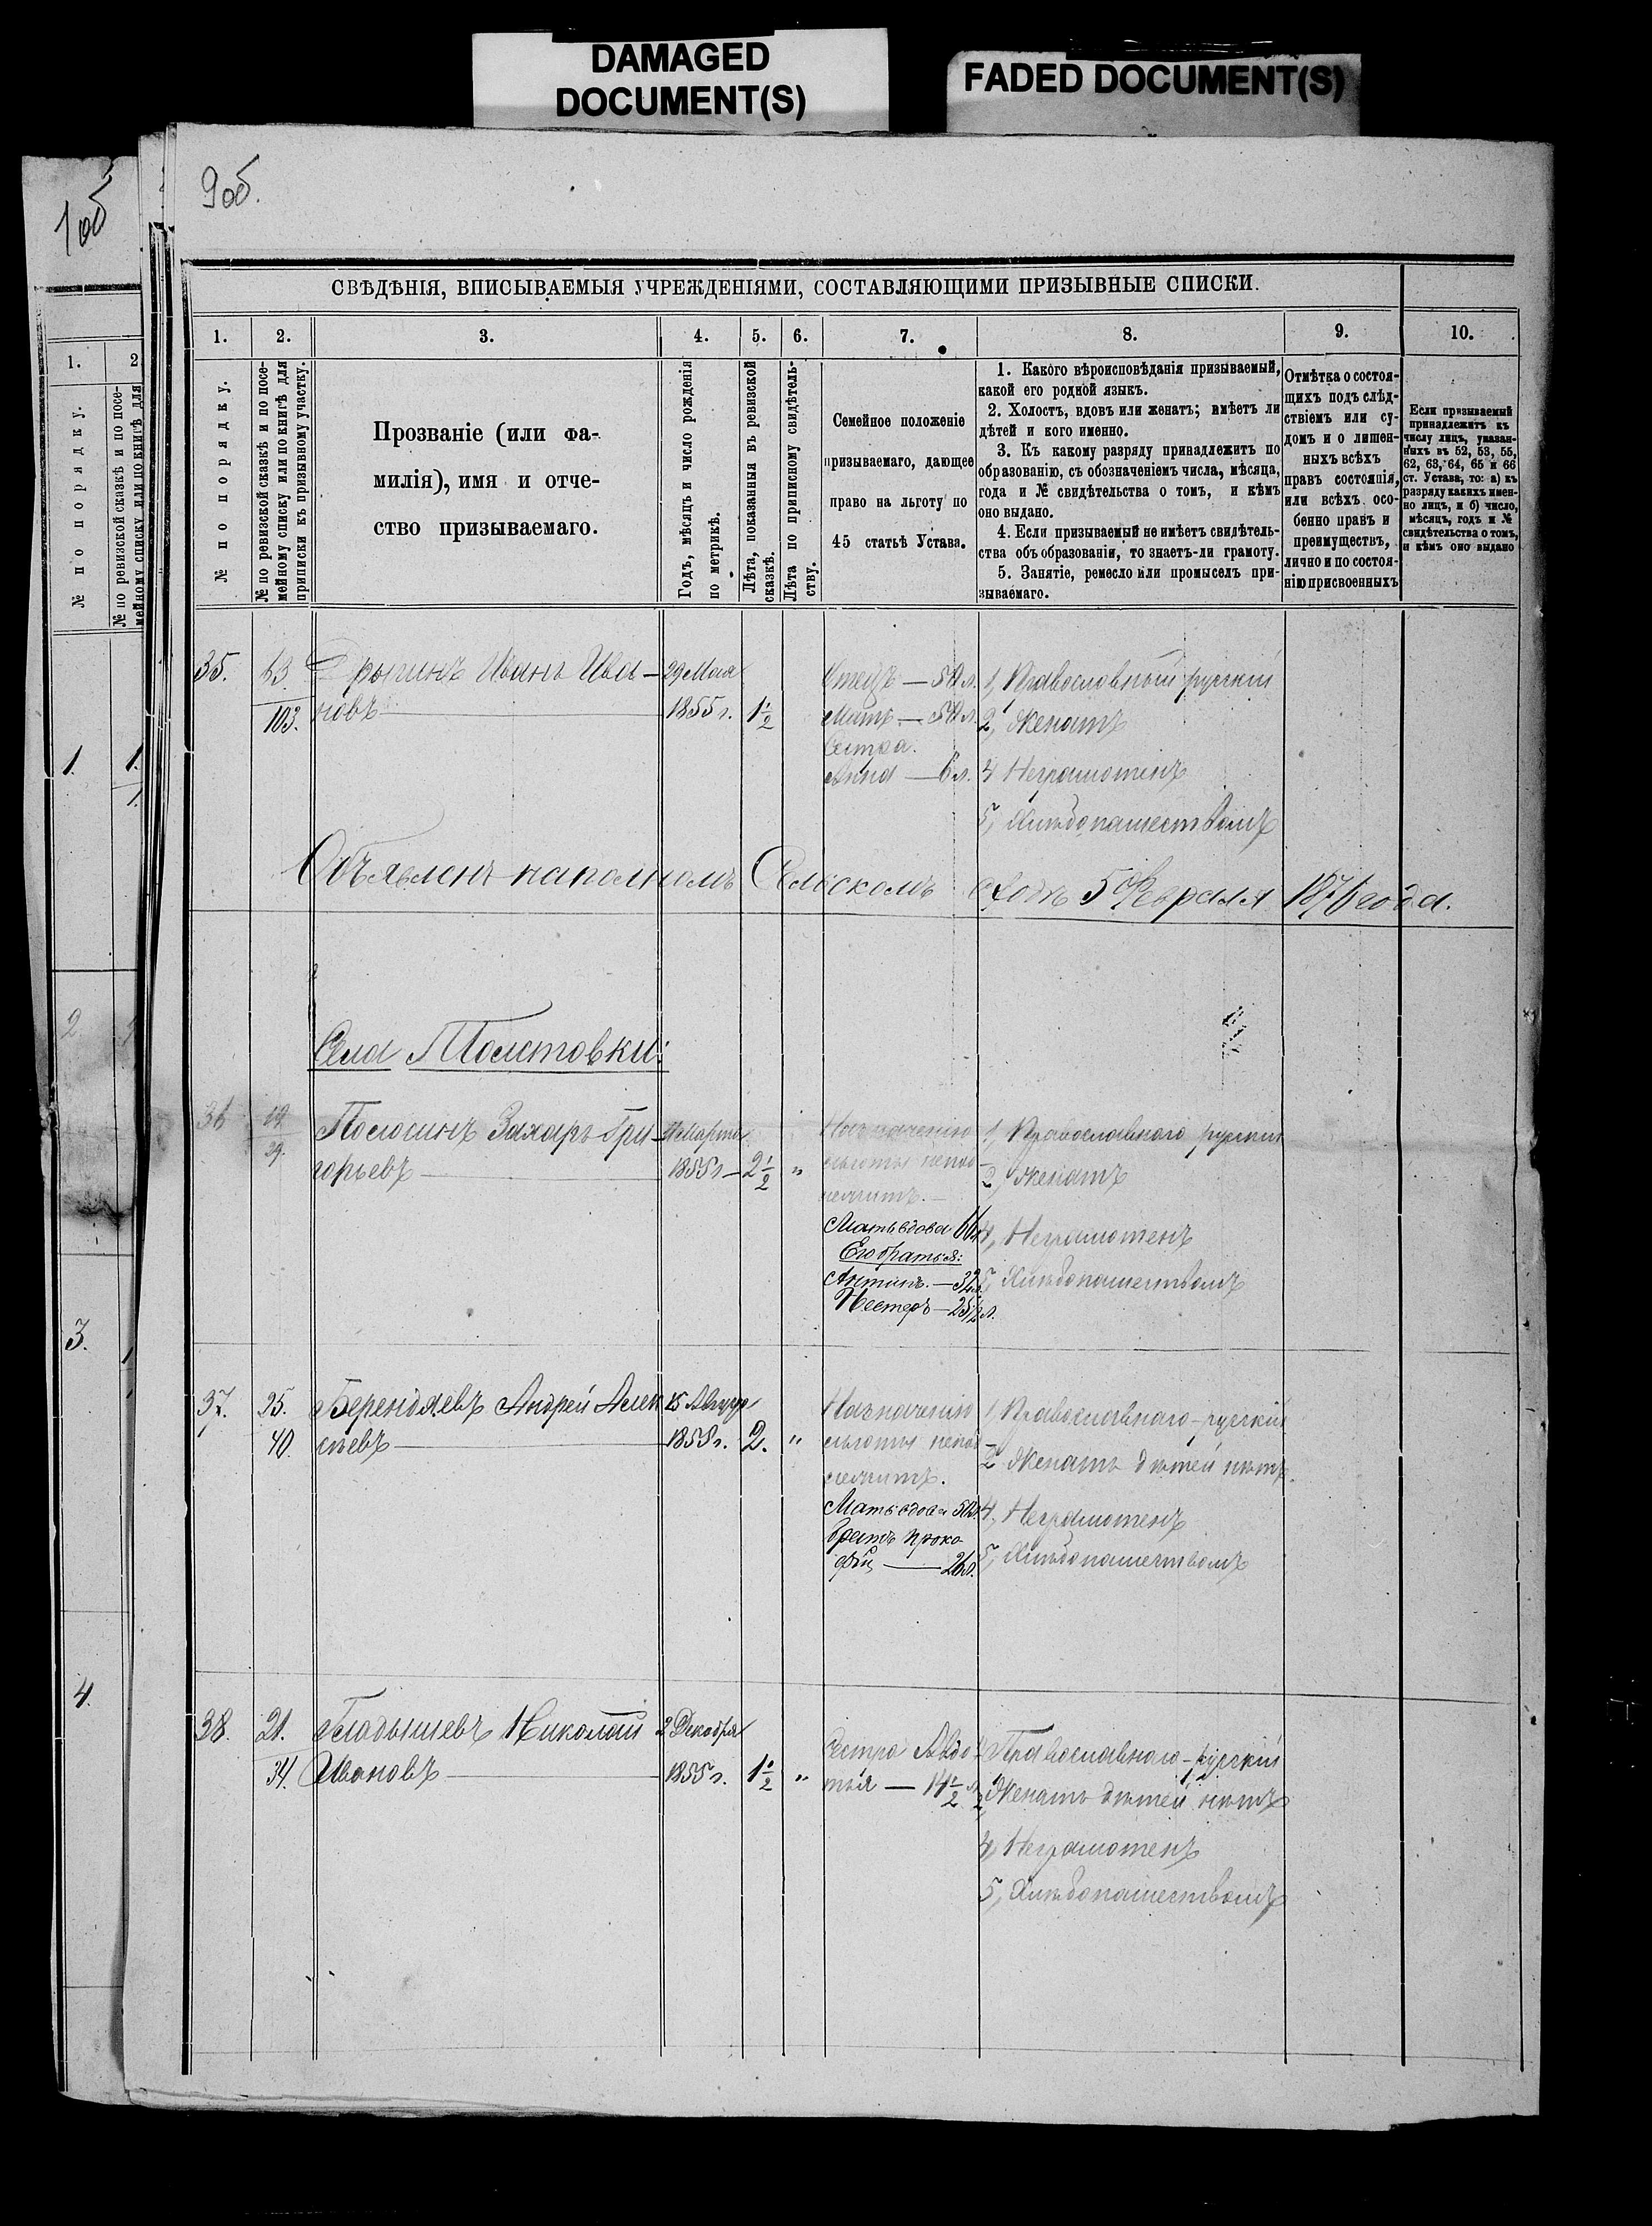 DAMAGED
DOCUMENT(S)
FADED DOCUMENT(S)
1об
9об.
СВѢДѢНІЯ, ВПИСЫВАЕМЫЯ УЧРЕЖДЕНІЯМИ, СОСТАВЛЯЮЩИМИ ПРИЗЫВНЫЕ СПИСКИ.
1. 2. 3. 4. 5. 6. 7. 8. 9. 10.
№ по порядку.
№ по ревизской сказкѣ и по посе-
мейному списку или по книгѣ для
приписки къ призывному участку.
Прозваніе (или фа-
милія), имя и отче-
ство призываемаго.
Годъ, мѣсяцъ и число рожденія
по метрикѣ.
Лѣта, показанныя въ ревизской
сказкѣ.
Лѣта по приписному свидѣтель-
ству.
Семейное положеніе
призываемаго, дающее
право на льготу по
45 статьѣ Устава.
1. Какого вѣроисповѣданія призываемый,
какой его родной языкъ.
2. Холостъ, вдовъ или женатъ; имѣетъ ли
дѣтей и кого именно.
3. Къ какому разряду принадлежитъ по
образованію, съ обозначеніемъ числа, мѣсяца,
года и № свидѣтельства о томъ, и кѣмъ
оно выдано.
4. Если призываемый не имѣетъ свидѣтель-
ства объ образованіи, то знаетъ-ли грамоту.
5. Занятіе, ремесло или промыселъ при-
зываемаго.
Отмѣтка о состоя-
щихъ подъ слѣд-
ствіемъ или су-
домъ и о лишен-
ныхъ всѣхъ
правъ состоянія,
или всѣхъ осо-
бенно правъ и
преимуществъ,
лично и по состоя-
нію присвоенныхъ
Если призываемый
принадлежитъ къ
числу лицъ, указан-
ныхъ въ 52, 53, 55,
62, 63, 64, 65 и 66
ст. Устава, то: а) къ
разряду какихъ имен-
но лицъ, и б) число,
мѣсяцъ, годъ и №
свидѣтельства о томъ,
и кѣмъ оно выдано
35. 63. Иванъ Ива- 29 Мая
103. новъ 1855 г. 1½
Отецъ
Мать
Сестра
Анна — 6 л.
1, Православный русскій
2, Женатъ
4 Неграмотенъ
5, Хлѣбопашествомъ
Объявленъ на полномъ Сельскомъ Сходѣ 5 Февраля 1876 года.
Села Толстовки:
36
29.
Захаръ Гри- Марта
горьевъ 1855 г. 2½ "
Назначенію
льготы непод-
лежитъ.
Мать вдова 66 л.
Его братья:
Нестеръ — 25½ л.
1, Православнаго русскій
2, Женатъ
4, Неграмотенъ
5, Хлѣбопашествомъ
37. 25. Берендяевъ Андрей Алек- 15 Август
40. сѣевъ 1855 г. 2. "
Назначенію
льготы непод-
лежитъ.
Мать вдова
братъ Проко
фій — 26 л.
1, Православнаго - русскій
2 Женатъ дѣтей нѣтъ.
4, Неграмотенъ
5, Хлѣбопашествомъ
38. 21. Гладышевъ Николай 2 Декабря
34. Ивановъ 1855 г. 1½ "
Сестра Авдо-
тья — 14½ л.
Православнаго - русскій
2 Женатъ дѣтей нѣтъ
4, Неграмотенъ
5, Хлѣбопашествомъ